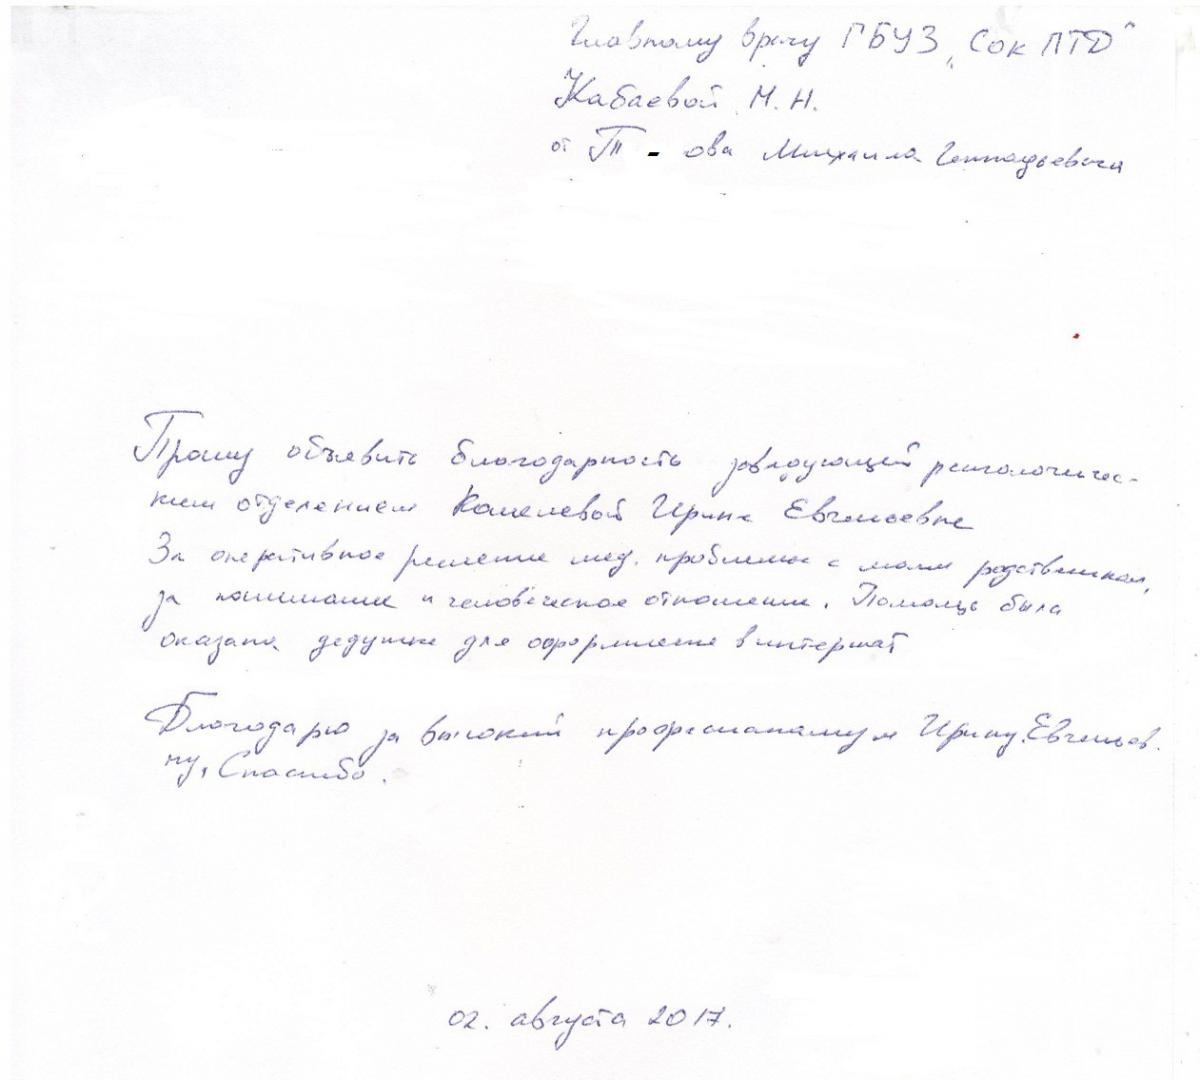 Главному врачу ГБУЗ „Сок ПТД"
Кабаевой М. Н.
от Т - ова Михаила Геннадьевича
Прошу объявить благодарность заведующей рентгологичес-
ким отделением Кошелевой Ирине Евгеньевне
За оперативное решение мед. проблемы с моим родственником,
за понимание и человеческое отношение. Помощь была
оказана дедушке для оформления в интернат
Благодарю за высокий професионализм Ирину Евгеньев.
ну, Спасибо.
02. августа 2017.